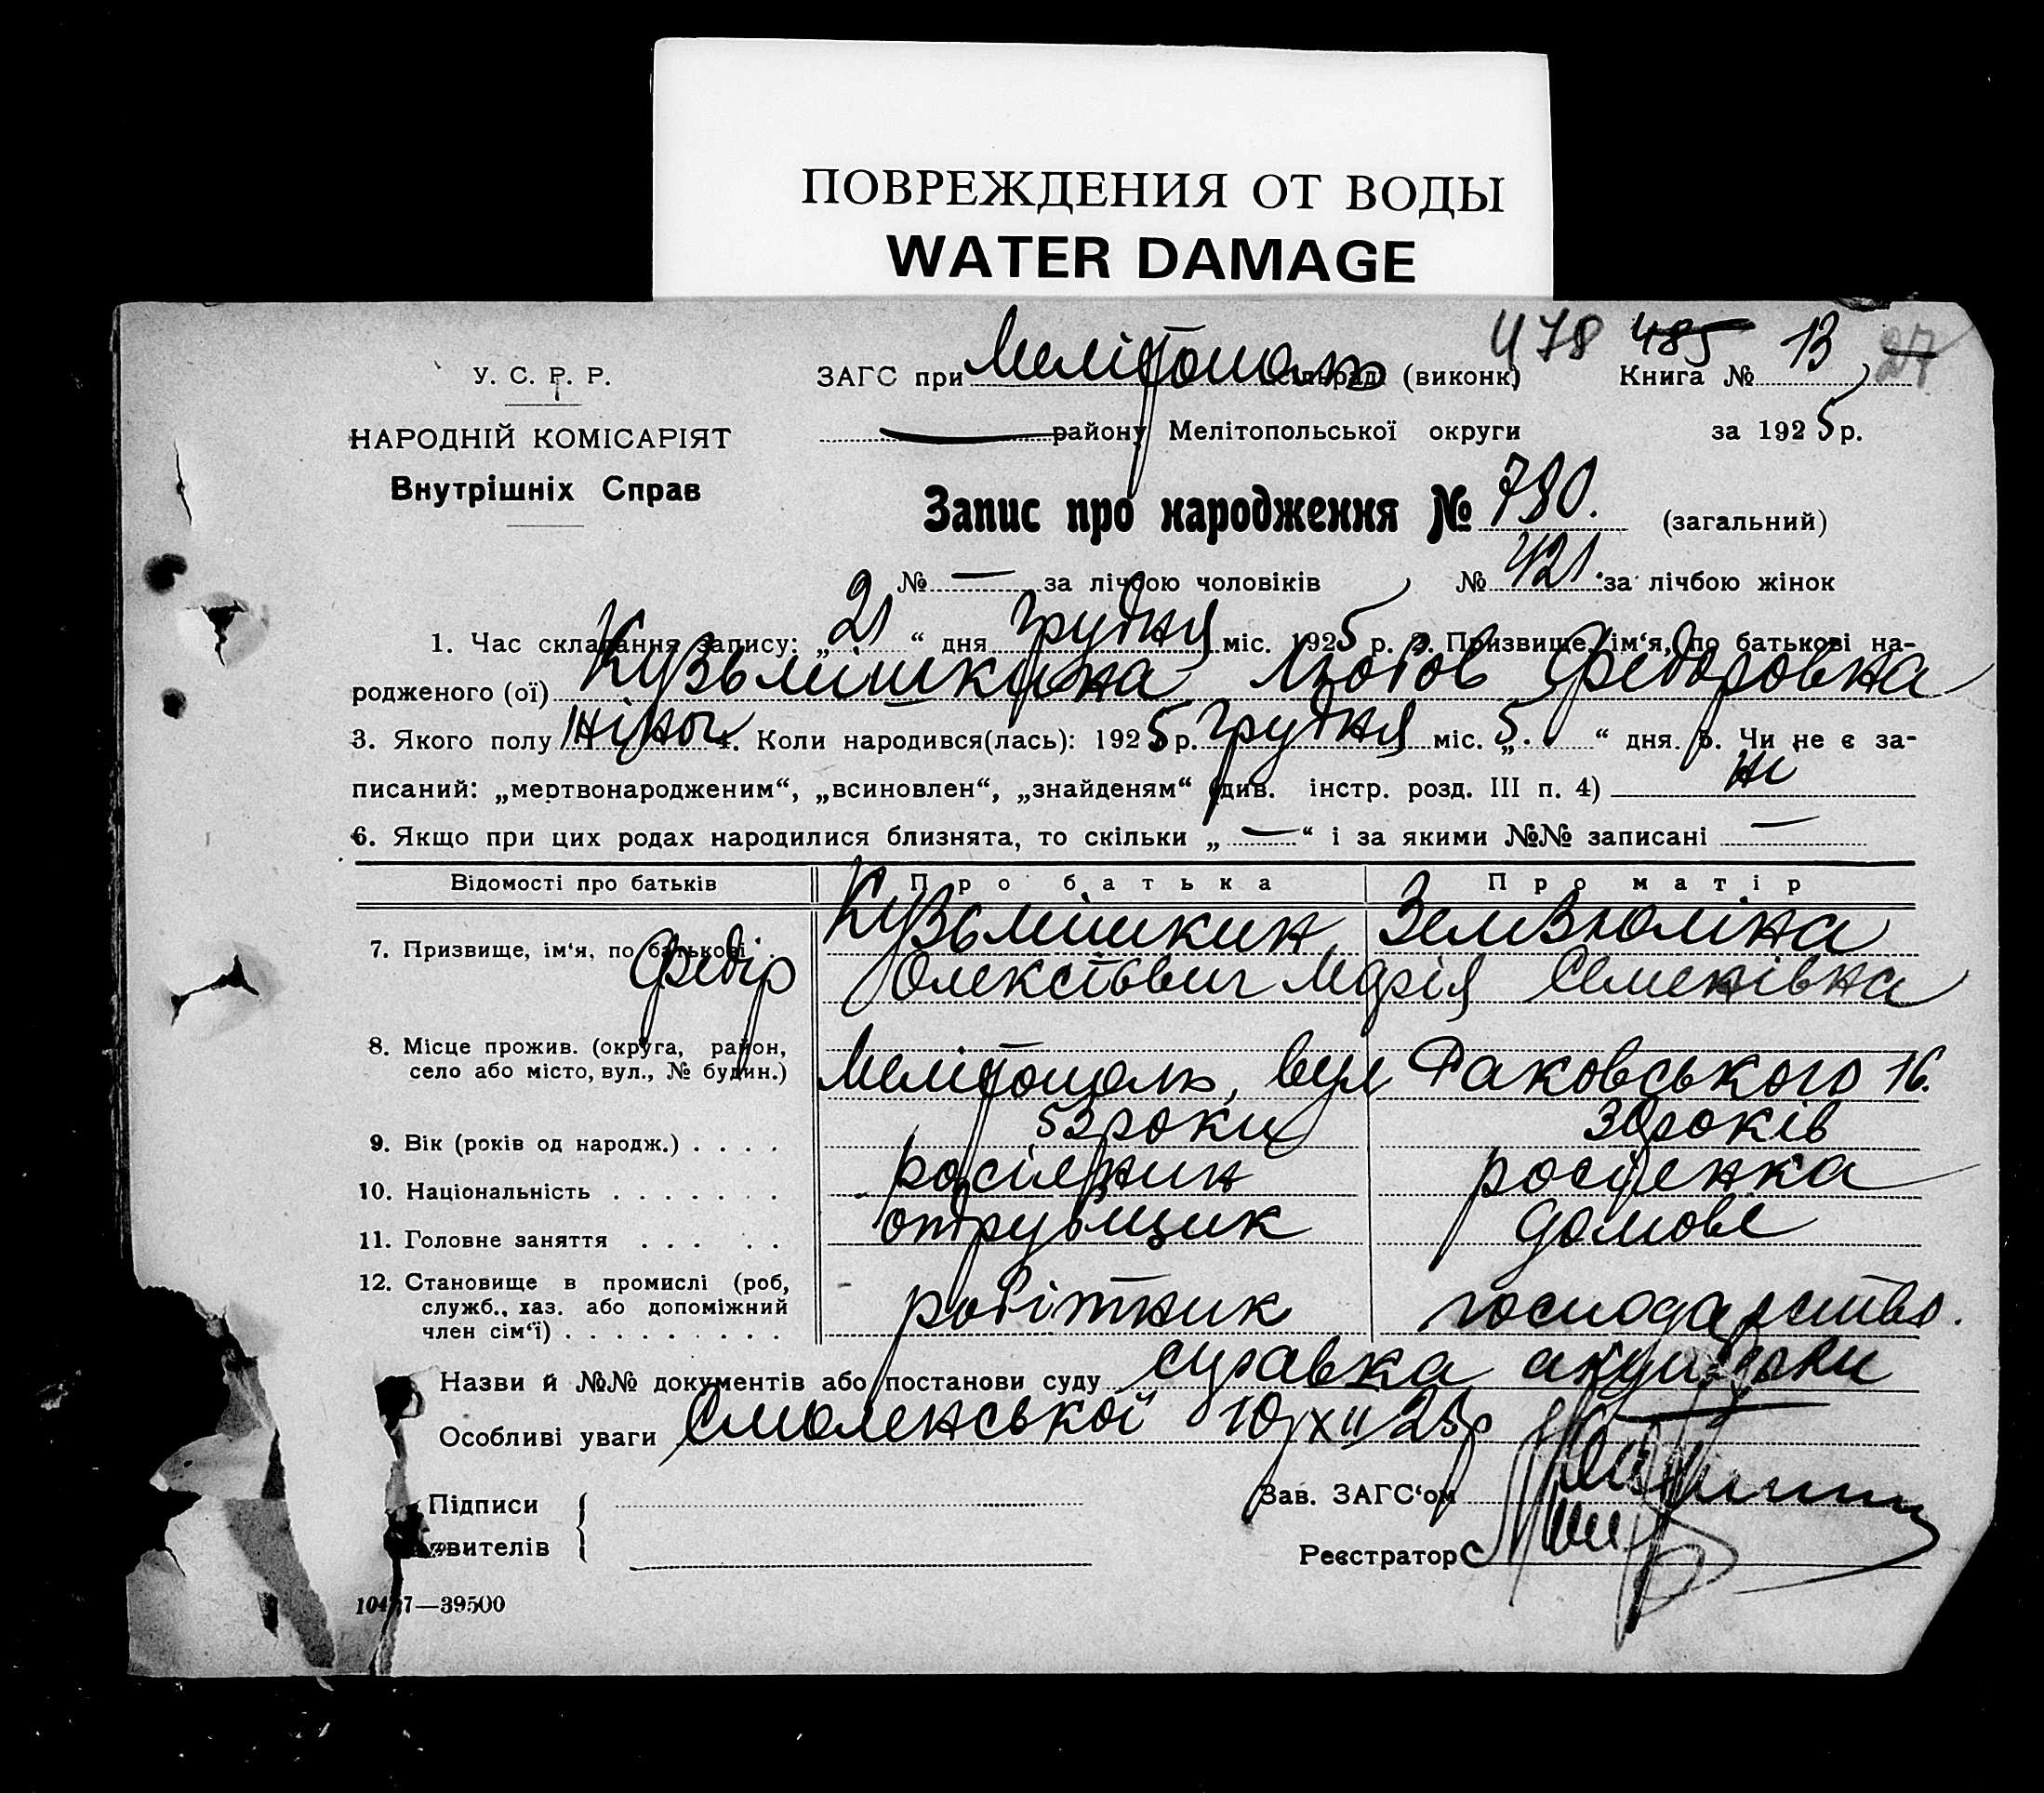 ПОВРЕЖДЕНИЯ ОТ ВОДЫ
WATER DAMAGE
478 485 13 27
У. С. Р. Р.
ЗАГС при Мелітополь сільраді (виконк) Книга №
НАРОДНІЙ КОМІСАРІЯТ
району Мелітопольської округи за 1925 р.
Внутрішніх Справ
Запис про народження № 780. (загальний)
№ — за лічбою чоловіків № 421. за лічбою жінок
1. Час складання запису: „21“ дня грудня міс. 1925 р. 2. Призвище, ім‘я, по батькові на-
родженого (ої) Кузьмішкина Любов Федоровна
3. Якого полу жіноч 4. Коли народився(лась): 1925 р. грудня міс. „5.“ дня. 5. Чи не є за-
писаний: „мертвонародженим“, „всиновлен“, „знайденям“ (див. інстр. розд. III п. 4) ні
6. Якщо при цих родах народилися близнята, то скільки „—“ і за якими №№ записані —
Відомості про батьків Про батька Про матір
7. Призвище, ім‘я, по батькові Кузьмішкин
Федір Марія Семенівна
8. Місце прожив. (округа, район,
село або місто, вул., № будин.) Мелітополь, вул Раковського 16.
9. Вік (років од народж.) . . . . 53 роки 30 років
10. Національність . . . . . . .
11. Головне заняття . . . . . отрубщик домове
12. Становище в промислі (роб,
служб., хаз. або допоміжний
член сім‘ї) . . . . . . . . . робітник господарство.
Назви й №№ документів або постанови суду справка акушерки
Особливі уваги Смоленської 10/XII/25р
Підписи
явителів
Зав. ЗАГС‘ом
Реєстратор
10487—39500